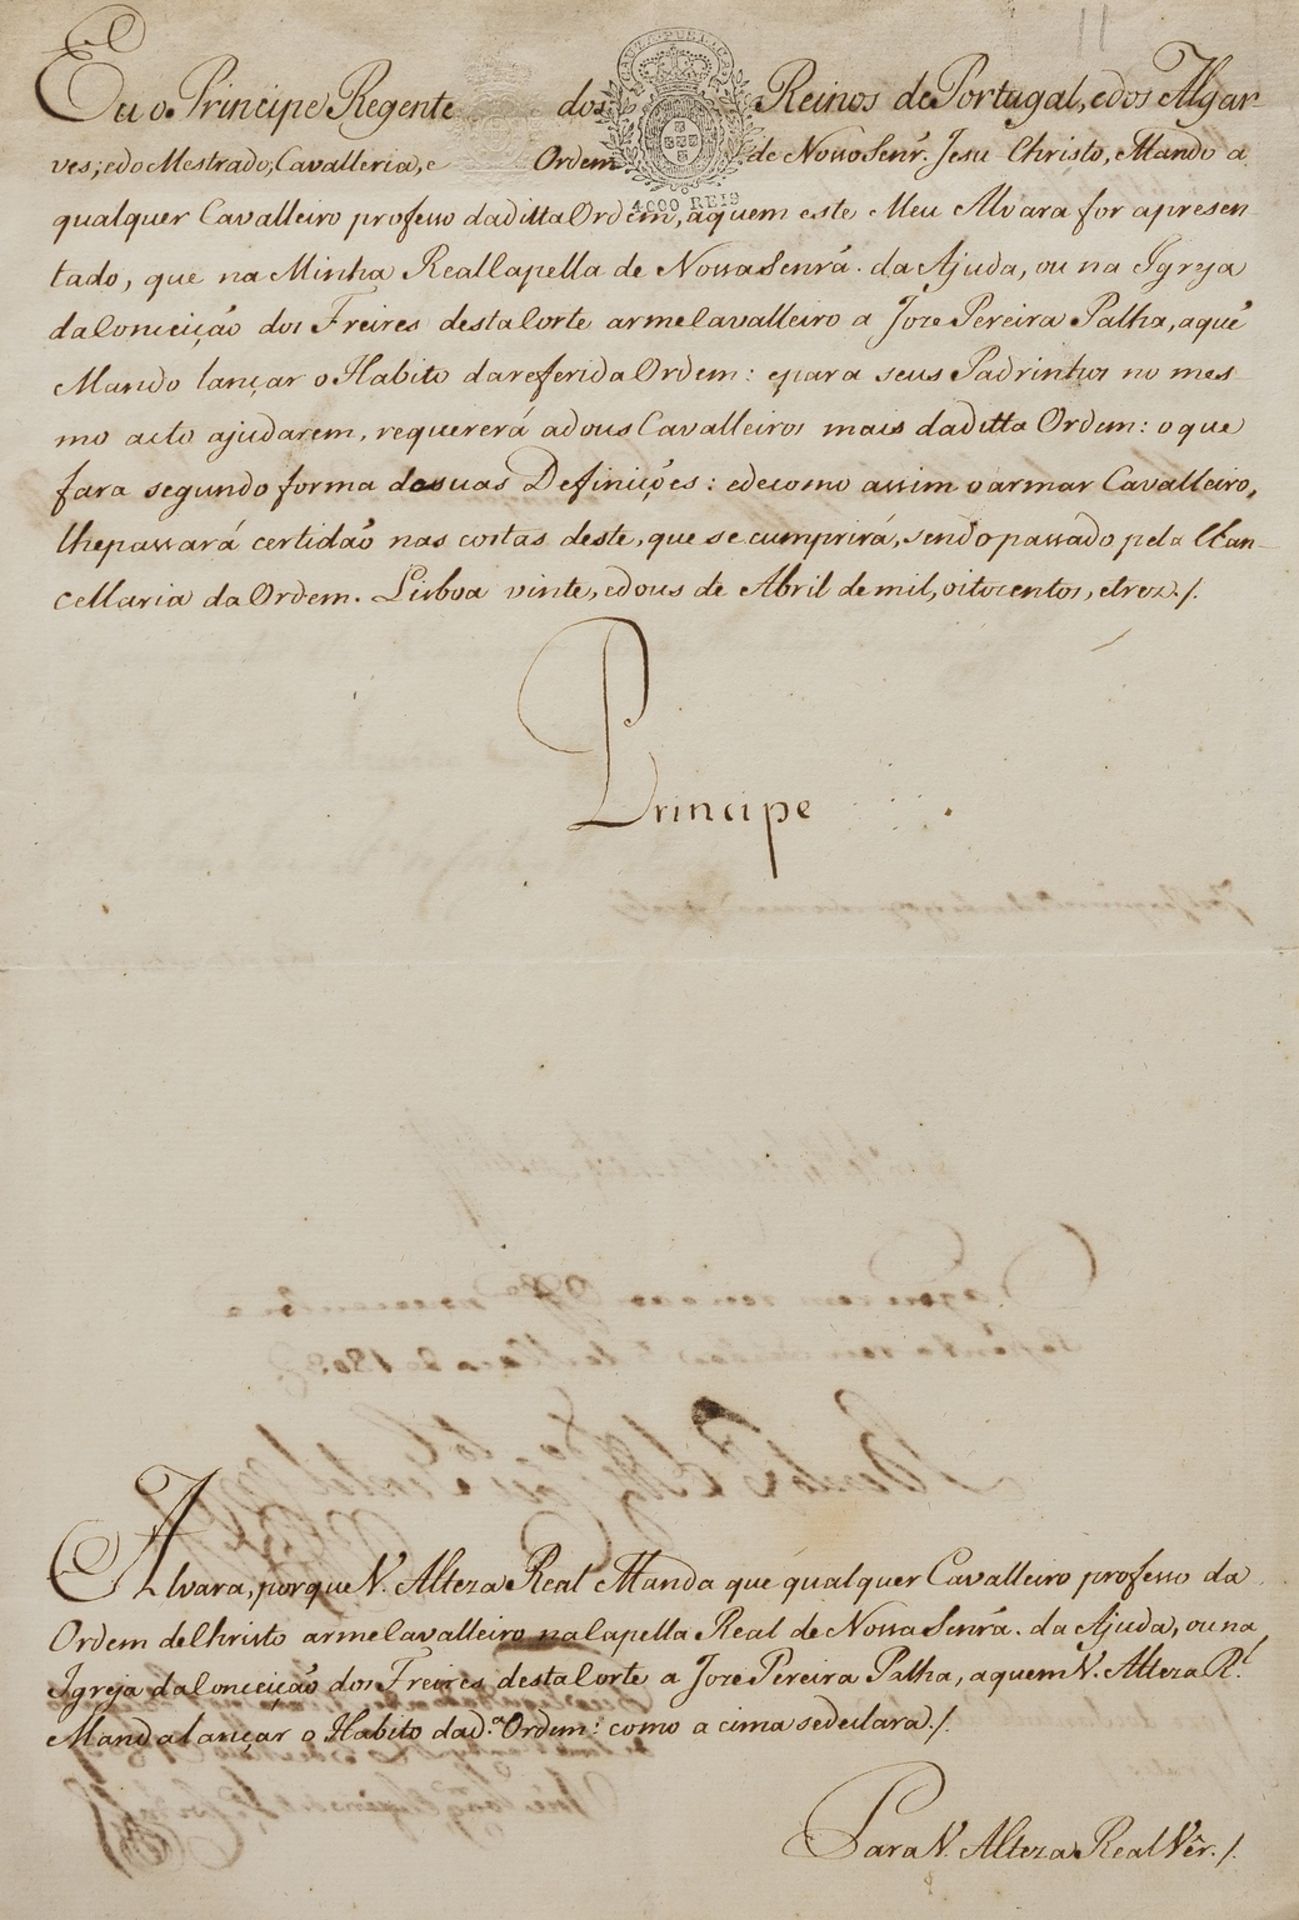 Eu o Principe Regente dos Reinos de Portugal, e dos Algar-
CAUZA PUBLICA
ves; e do Mestrado, Cavalleria, e Ordem de Nosso Senr. Jesu Christo, Mando a
4000 REIS
qualquer Cavalleiro professo da ditta Ordem, a quem este Meu Alvara for apresen-
tado, que na Minha Real Capella de Nossa Senrá. da Ajuda, ou na Igreja
da Conceição dos Freires desta Corte arme Cavalleiro a Joze Pereira Palha, a quẽ
Mando lançar o Habito da referida Ordem: e para seus Padrinhos no mes-
mo acto ajudarem, requererá a dous Cavalleiros mais da ditta Ordem: o que
fara segundo forma de suas Definições: e de como assim o armar Cavalleiro,
lhe passará certidão nas costas deste, que se cumprirá, sendo passado pela Chan-
cellaria da Ordem. Lisboa vinte, e dous de Abril de mil, oitocentos, e trez./.
Principe
Alvara, porque V. Alteza Real Manda que qualquer Cavalleiro professo da
Ordem de Christo arme Cavalleiro na Capella Real de Nossa Senrá. da Ajuda, ou na
Igreja da Conceição dos Freires desta Corte a Joze Pereira Palha, a quem V. Alteza R.l
Manda lançar o Habito da d.ª Ordem: como a cima se declara./.
Para V. Alteza Real Vêr./.